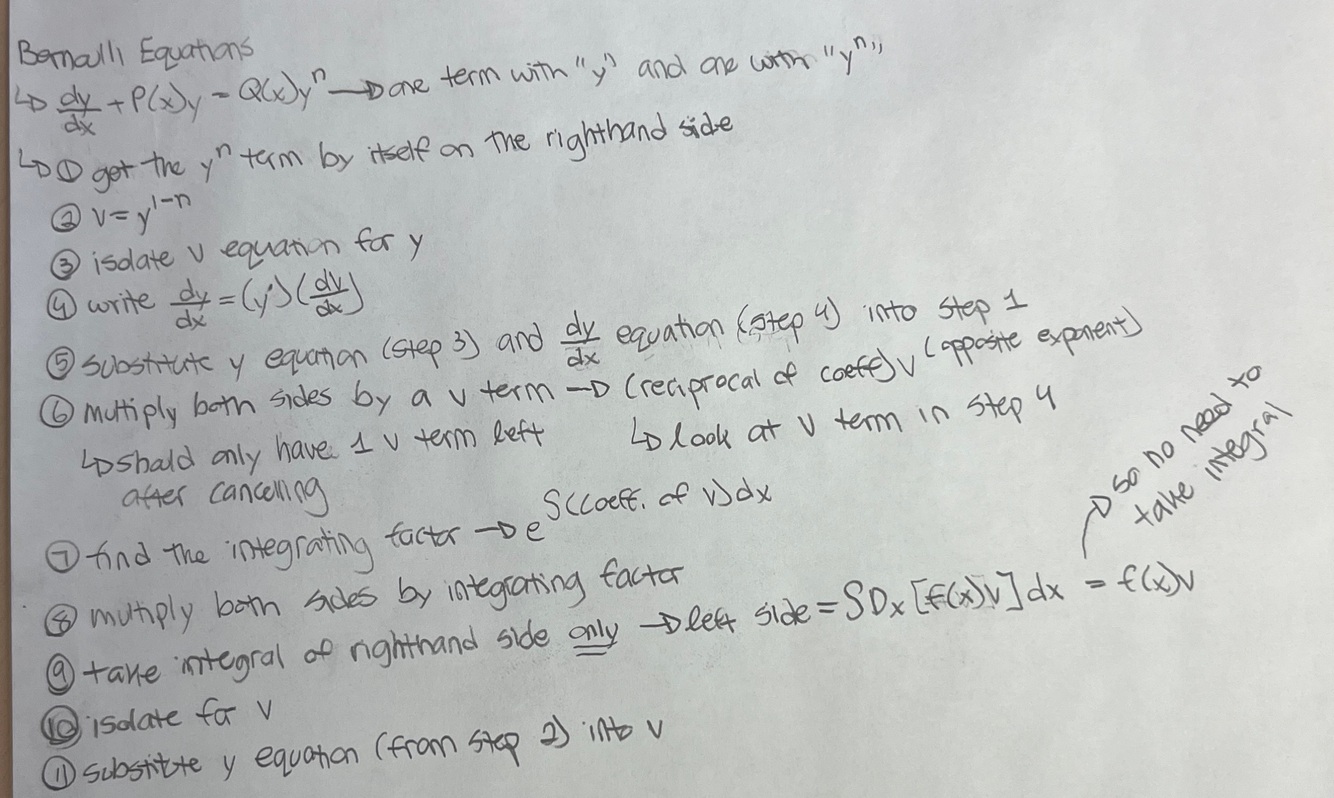 Bernoulli Equations
↳ dy/dx + P(x)y = Q(x)yⁿ → one term with "y" and one with "yⁿ"
↳ ① get the yⁿ term by itself on the righthand side
② v = y¹⁻ⁿ
③ isolate v equation for y
④ write dy/dx = (y')(dv/dx)
⑤ substitute y equation (step 3) and dy/dx equation (step 4) into step 1
⑥ multiply both sides by a v term → (reciprocal of coeff) v^(opposite exponent)
↳ should only have 1 v term left
after cancelling
↳ look at v term in step 4
⑦ find the integrating factor → e^∫(coeff. of v)dx
⑧ multiply both sides by integrating factor
⑨ take integral of righthand side only → left side = ∫Dₓ[f(x)v]dx = f(x)v
↳ so no need to
take integral
⑩ isolate for v
⑪ substitute y equation (from step 2) into v